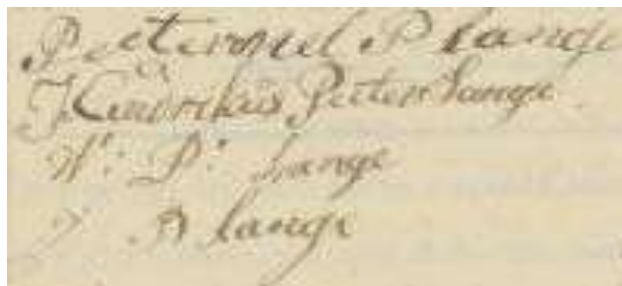 Peeternel P Lange
Hendrikus Peeter Lange
H: P: Lange
P Lange